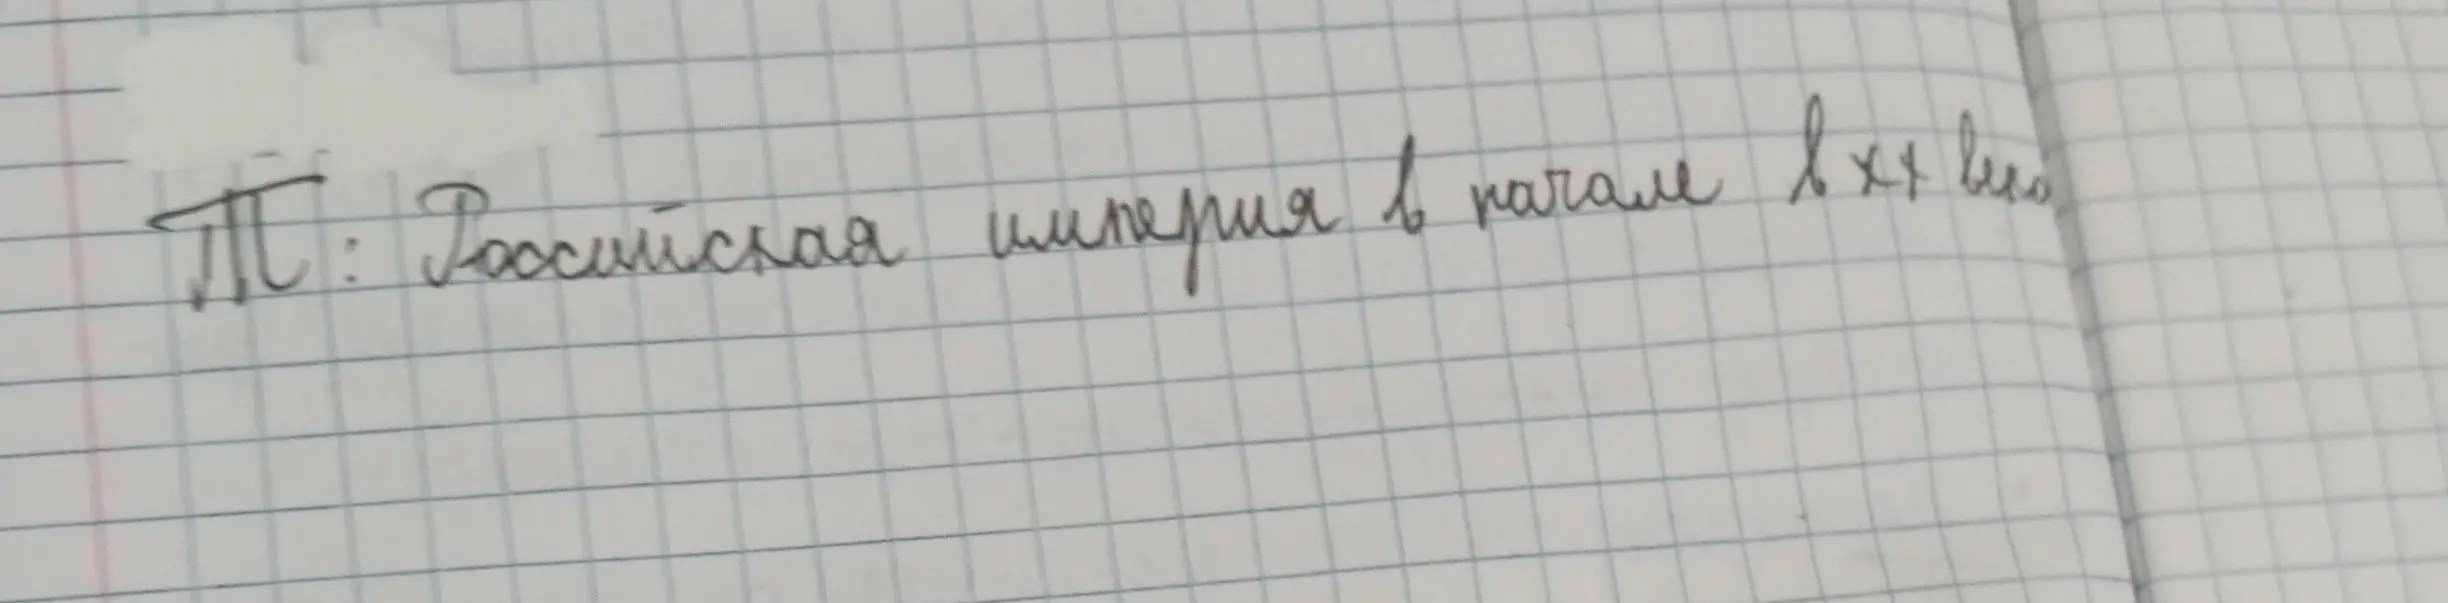 Т: Российская империя в начале в XX века